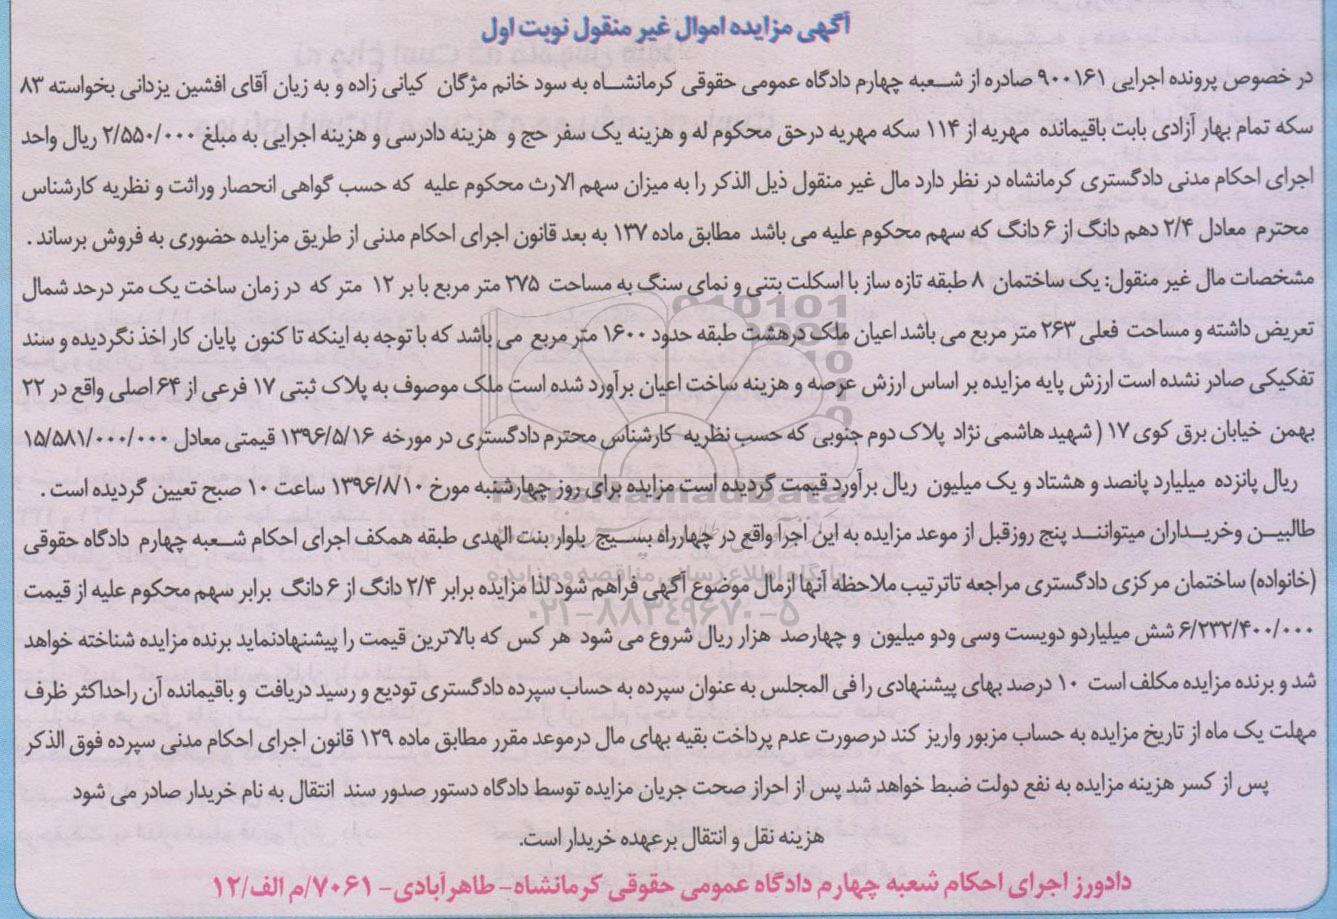 آگهی مزایده اموال غیر منقول نوبت اول
در خصوص پرونده اجرایی ۹۰۰۱۶۱ صادره از شعبه چهارم دادگاه عمومی حقوقی کرمانشاه به سود خانم مژگان کیانی زاده و به زیان آقای افشین یزدانی بخواسته ۸۳
سکه تمام بهار آزادی بابت باقیمانده مهریه از ۱۱۴ سکه مهریه درحق محکوم له و هزینه یک سفر حج و هزینه دادرسی و هزینه اجرایی به مبلغ ۲/۵۵۰/۰۰۰ ریال واحد
اجرای احکام مدنی دادگستری کرمانشاه در نظر دارد مال غیر منقول ذیل الذکر را به میزان سهم الارث محکوم علیه که حسب گواهی انحصار وراثت و نظریه کارشناس
محترم معادل ۲/۴ دهم دانگ از ۶ دانگ که سهم محکوم علیه می باشد مطابق ماده ۱۳۷ به بعد قانون اجرای احکام مدنی از طریق مزایده حضوری به فروش برساند .
مشخصات مال غیر منقول: یک ساختمان ۸ طبقه تازه ساز با اسکلت بتنی و نمای سنگ به مساحت ۲۷۵ متر مربع با بر ۱۲ متر که در زمان ساخت یک متر درحد شمال
تعریض داشته و مساحت فعلی ۲۶۳ متر مربع می باشد اعیان ملک درهشت طبقه حدود ۱۶۰۰ متر مربع می باشد که با توجه به اینکه تا کنون پایان کار اخذ نگردیده و سند
تفکیکی صادر نشده است ارزش پایه مزایده بر اساس ارزش عرصه و هزینه ساخت اعیان برآورد شده است ملک موصوف به پلاک ثبتی ۱۷ فرعی از ۶۴ اصلی واقع در ۲۲
بهمن خیابان برق کوی ۱۷ ( شهید هاشمی نژاد پلاک دوم جنوبی که حسب نظریه کارشناس محترم دادگستری در مورخه ۱۳۹۶/۵/۱۶ قیمتی معادل ۱۵/۵۸۱/۰۰۰/۰۰۰
ریال پانزده میلیارد پانصد و هشتاد و یک میلیون ریال برآورد قیمت گردیده است مزایده برای روز چهارشنبه مورخ ۱۳۹۶/۸/۱۰ ساعت ۱۰ صبح تعیین گردیده است .
طالبین وخریداران میتوانند پنج روزقبل از موعد مزایده به این اجرا واقع در چهارراه بسیج بلوار بنت الهدی طبقه همکف اجرای احکام شعبه چهارم دادگاه حقوقی
(خانواده) ساختمان مرکزی دادگستری مراجعه تاترتیب ملاحظه آنها ازمال موضوع آگهی فراهم شود لذا مزایده برابر ۲/۴ دانگ از ۶ دانگ برابر سهم محکوم علیه از قیمت
۶/۲۳۲/۴۰۰/۰۰۰ شش میلیاردو دویست وسی ودو میلیون و چهارصد هزار ریال شروع می شود هر کس که بالاترین قیمت را پیشنهادنماید برنده مزایده شناخته خواهد
شد و برنده مزایده مکلف است ۱۰ درصد بهای پیشنهادی را فی المجلس به عنوان سپرده به حساب سپرده دادگستری تودیع و رسید دریافت و باقیمانده آن راحداکثر ظرف
مهلت یک ماه از تاریخ مزایده به حساب مزبور واریز کند درصورت عدم پرداخت بقیه بهای مال درموعد مقرر مطابق ماده ۱۲۹ قانون اجرای احکام مدنی سپرده فوق الذکر
پس از کسر هزینه مزایده به نفع دولت ضبط خواهد شد پس از احراز صحت جریان مزایده توسط دادگاه دستور صدور سند انتقال به نام خریدار صادر می شود
هزینه نقل و انتقال برعهده خریدار است.
دادورز اجرای احکام شعبه چهارم دادگاه عمومی حقوقی کرمانشاه- طاهرآبادی- ۷۰۶۱/م الف/۱۲
ParsNamadData
۰۲۱-۸۸۳۴۹۶۷۰-۵